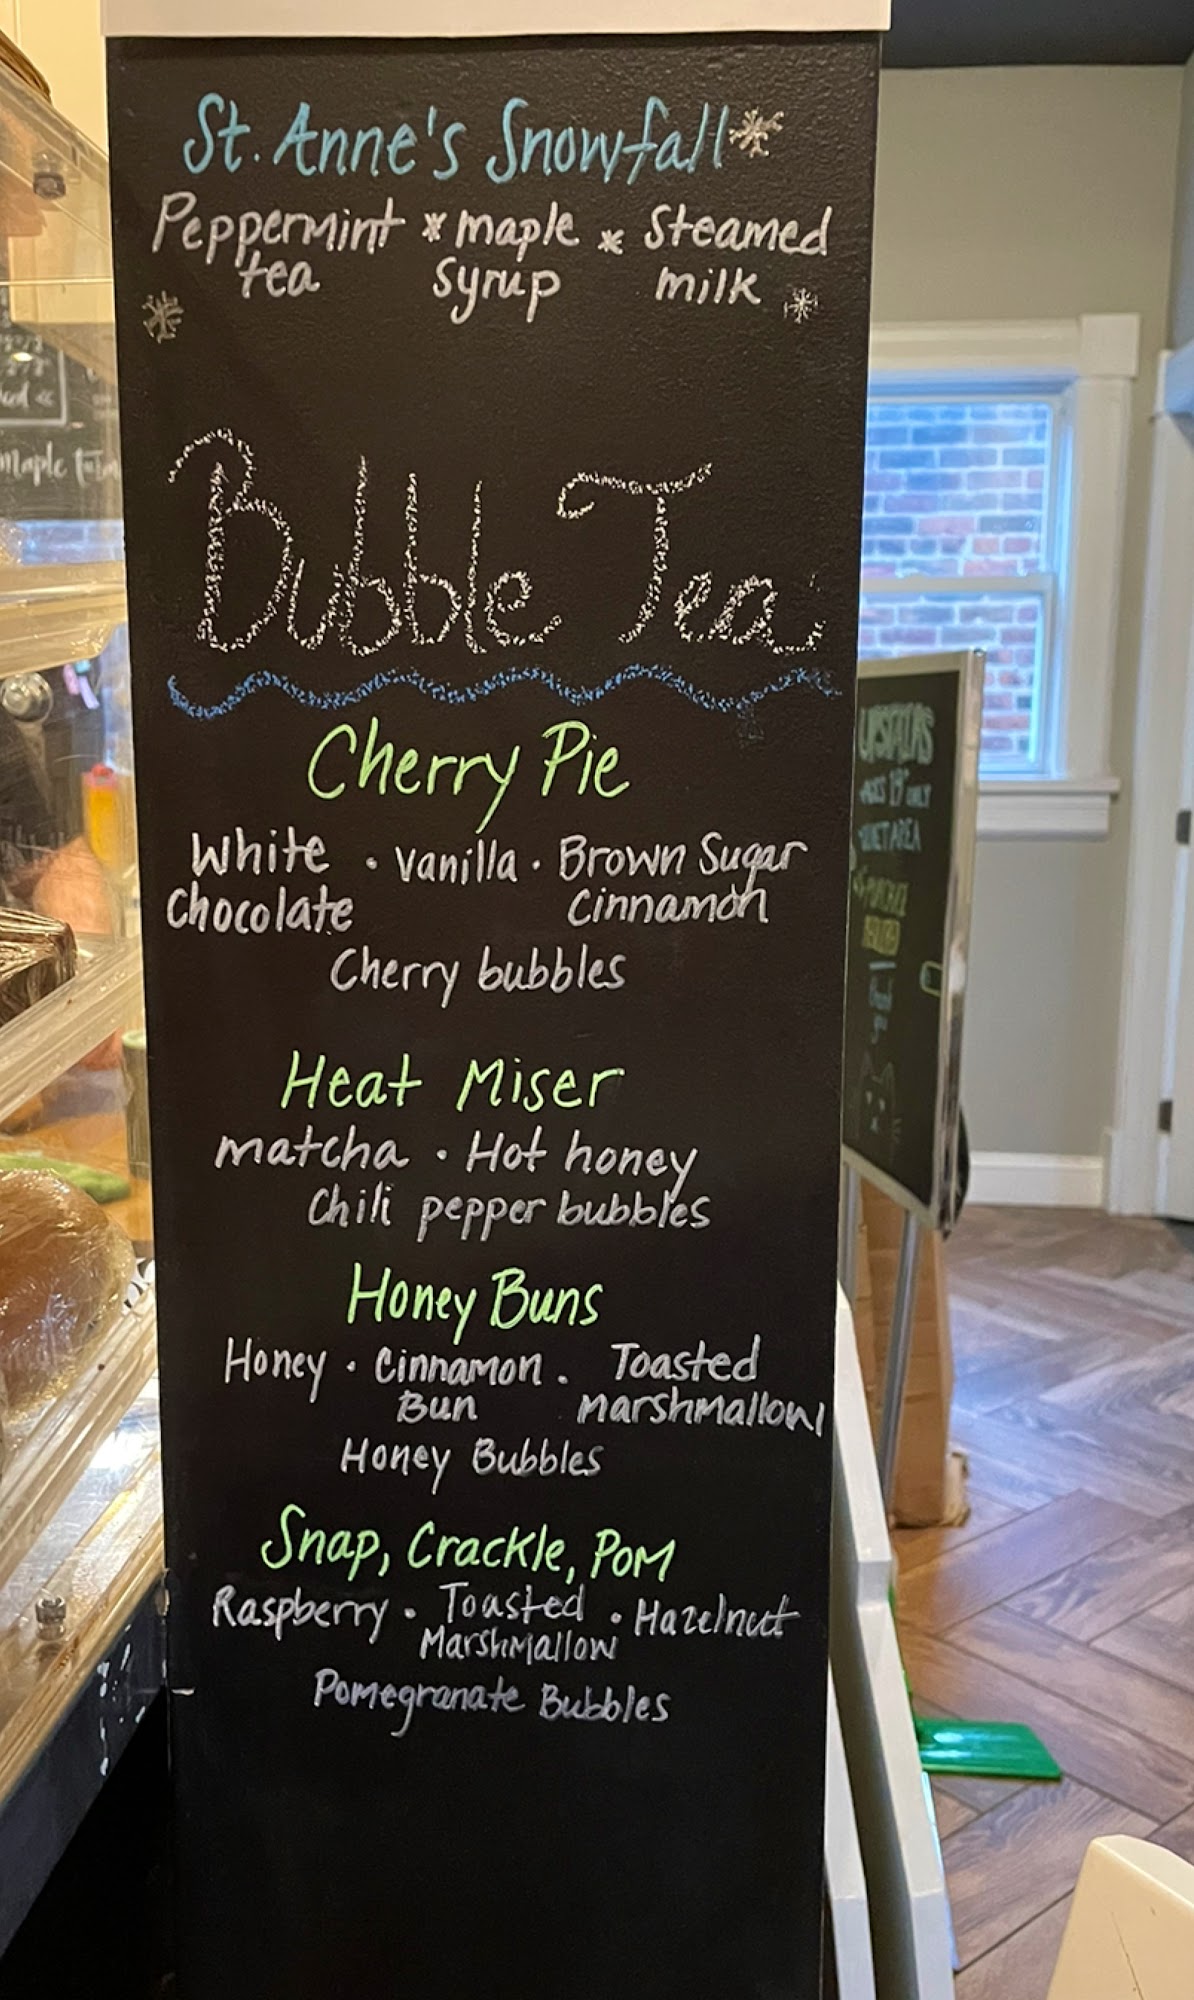 St. Anne's Snowfall
Peppermint * maple * Steamed
tea syrup milk
Bubble Tea
Cherry Pie
White · Vanilla · Brown Sugar
Chocolate Cinnamon
Cherry bubbles
Heat Miser
matcha · Hot honey
Chili pepper bubbles
Honey Buns
Honey · Cinnamon · Toasted
Bun marshmallow
Honey Bubbles
Snap, Crackle, Pom
Raspberry · Toasted · Hazelnut
Marshmallow
Pomegranate Bubbles
Maple
UPSTAIRS
AGES 19+ ONLY
QUIET AREA
thank
you